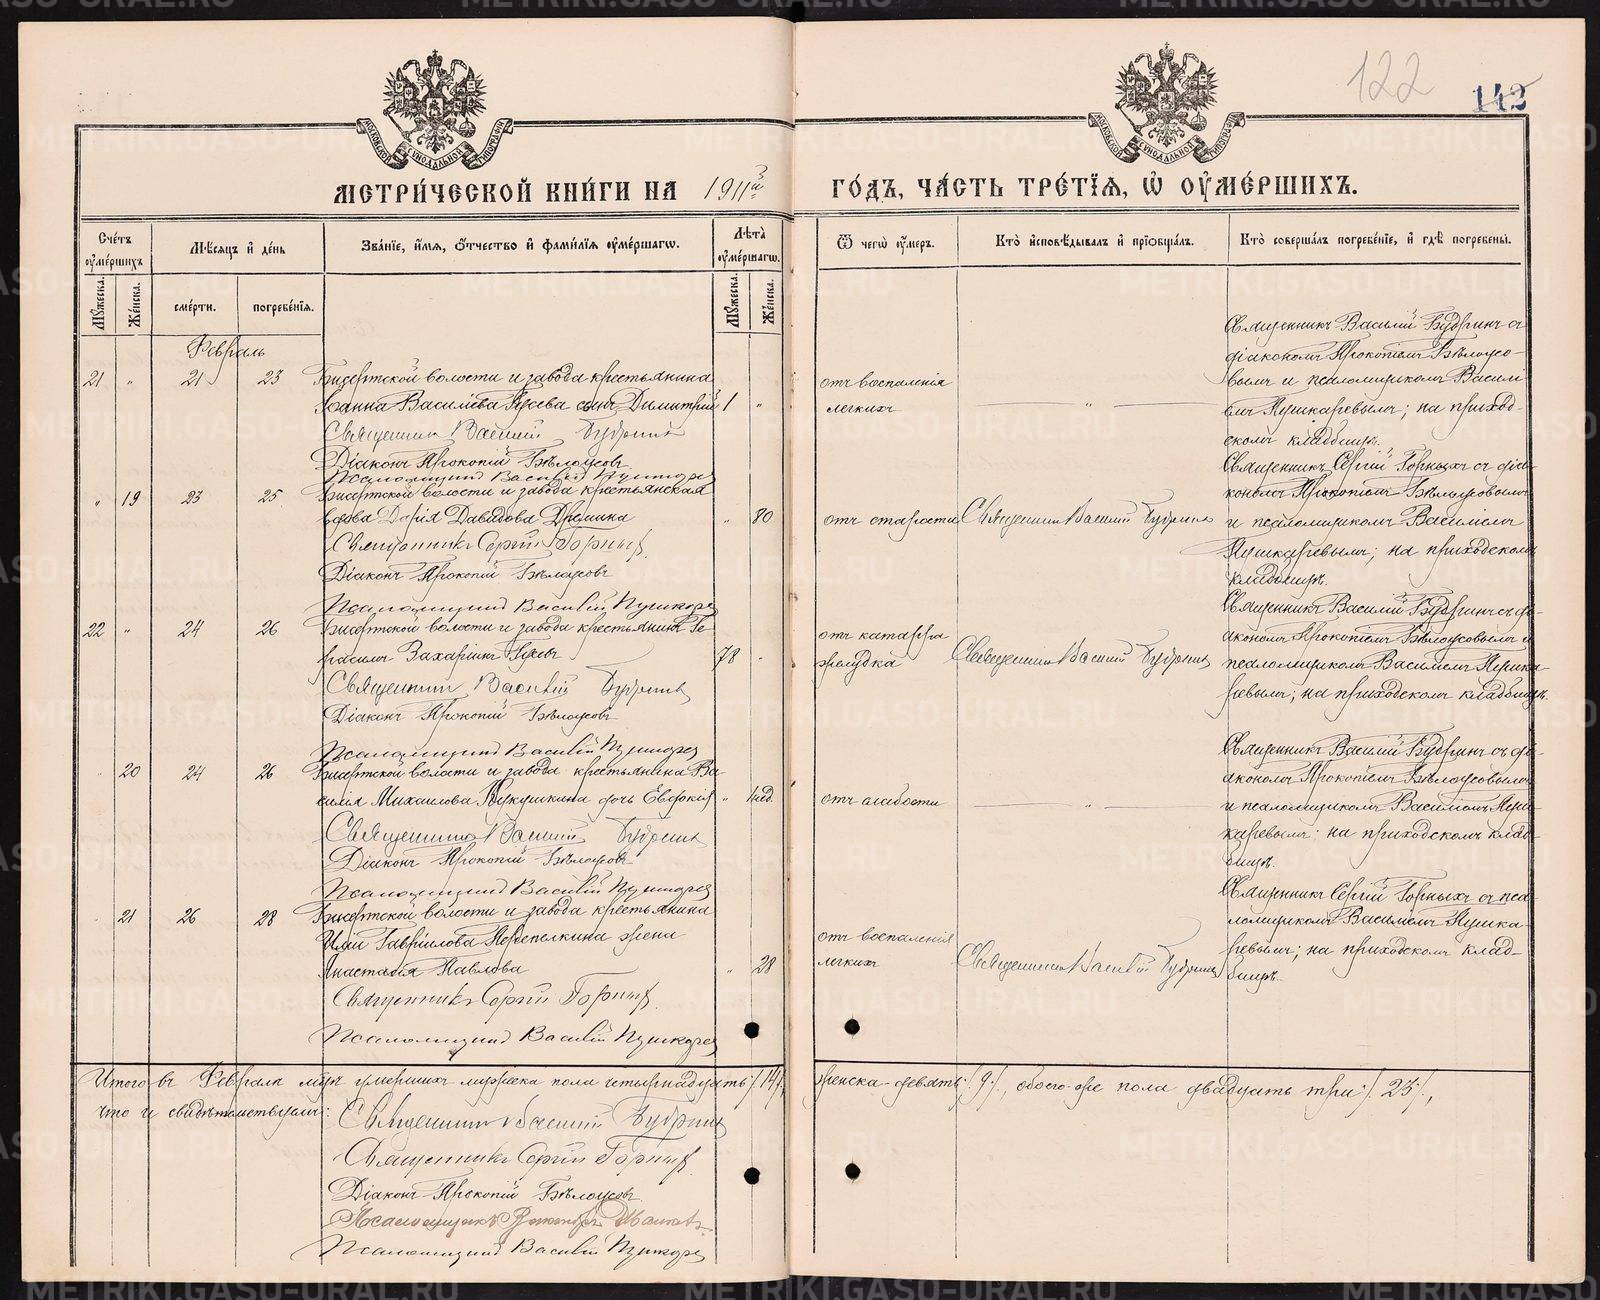 122
142
МОСКОВСКОЙ СѴНОДАЛЬНОЙ ТИПОГРАФІИ
МОСКОВСКОЙ СѴНОДАЛЬНОЙ ТИПОГРАФІИ
МЕТРИ́ЧЕСКОЙ КНИ́ГИ НА 1911й
ГО́ДЪ, ЧА́СТЬ ТРЕ́ТІѦ, Ѡ҆ ОУ҆МЕ́РШИХЪ.
Сче́тъ оу҆ме́ршихъ
Мѣ́сѧцъ и҆ де́нь
Зва́нїе, и҆́мѧ, ѻ҆́тчество и҆ фами́лїѧ оу҆ме́ршагѡ.
Лѣ́та оу҆ме́ршагѡ.
Ѿ чегѡ̀ оу҆́меръ.
Кто̀ и҆сповѣ́дывалъ и҆ прїѡбща́лъ.
Кто̀ соверша́лъ погребе́нїе, и҆ гдѣ̀ погребены̀.
Мꙋ́жеска.
Же́нска.
сме́рти.
погребе́нїѧ.
Мꙋ́жеска.
Же́нска.
Февраль
21 " 21 23 Бисертской волости и завода крестьянина
Іоанна Василіева Гусева сынъ Димитрій 1 "
Священникъ Василій Будринъ
Діаконъ Прокопій Бѣлоусовъ
Псаломщикъ Василій Пушкаревъ
отъ воспаленія
легкихъ
"
Священникъ Василій Будринъ съ
діакономъ Прокопіемъ Бѣлоусо-
вымъ и псаломщикомъ Василі
емъ Пушкаревымъ; на приход-
скомъ кладбищѣ.
" 19 23 25 Бисертской волости и завода крестьянская
вдова Дарія Давидова Дремина " 80
Священникъ Сергій Горныхъ
Діаконъ Прокопій Бѣлоусовъ
Псаломщикъ Василій Пушкаревъ
отъ старости
Священникъ Василій Будринъ
Священникъ Сергій Горныхъ съ діа-
кономъ Прокопіемъ Бѣлоусовымъ
и псаломщикомъ Василіемъ
Пушкаревымъ; на приходскомъ
кладбищѣ.
22 " 24 26 Бисертской волости и завода крестьянинъ Ге-
расимъ Захаринъ Гусевъ 78 "
Священникъ Василій Будринъ
Діаконъ Прокопій Бѣлоусовъ
Псаломщикъ Василій Пушкаревъ
отъ катарра
желудка
Священникъ Василій Будринъ
Священникъ Василій Будринъ съ ді-
акономъ Прокопіемъ Бѣлоусовымъ и
псаломщикомъ Василіемъ Пушка-
ревымъ; на приходскомъ кладбищѣ.
" 20 24 26 Бисертской волости и завода крестьянина Ва-
силія Михаилова Кукушкина дочь Евдокія " 4нед.
Священникъ Василій Будринъ
Діаконъ Прокопій Бѣлоусовъ
Псаломщикъ Василій Пушкаревъ
отъ слабости
"
Священникъ Василій Будринъ съ ді-
акономъ Прокопіемъ Бѣлоусовымъ
и псаломщикомъ Василіемъ Пуш-
каревымъ; на приходскомъ клад-
бищѣ.
" 21 26 28 Бисертской волости и завода крестьянина
Иліи Гавріилова Перепелкина жена
Анастасія Павлова " 28
Священникъ Сергій Горныхъ
Псаломщикъ Василій Пушкаревъ
отъ воспаленія
легкихъ
Священникъ Василій Будринъ
Священникъ Сергій Горныхъ съ пса-
ломщикомъ Василіемъ Пушка-
ревымъ; на приходскомъ клад-
бищѣ.
Итого въ Февралѣ м-цѣ умершихъ мужеска пола четырнадцать /14/,
женска-девять /9/, обоего-же пола двадцать три /23/,
что и свидѣтельствуемъ:
Священникъ Василій Будринъ
Священникъ Сергій Горныхъ
Діаконъ Прокопій Бѣлоусовъ
Псаломщикъ
Псаломщикъ Василій Пушкаревъ
METRIKI.GASO-URAL.RU